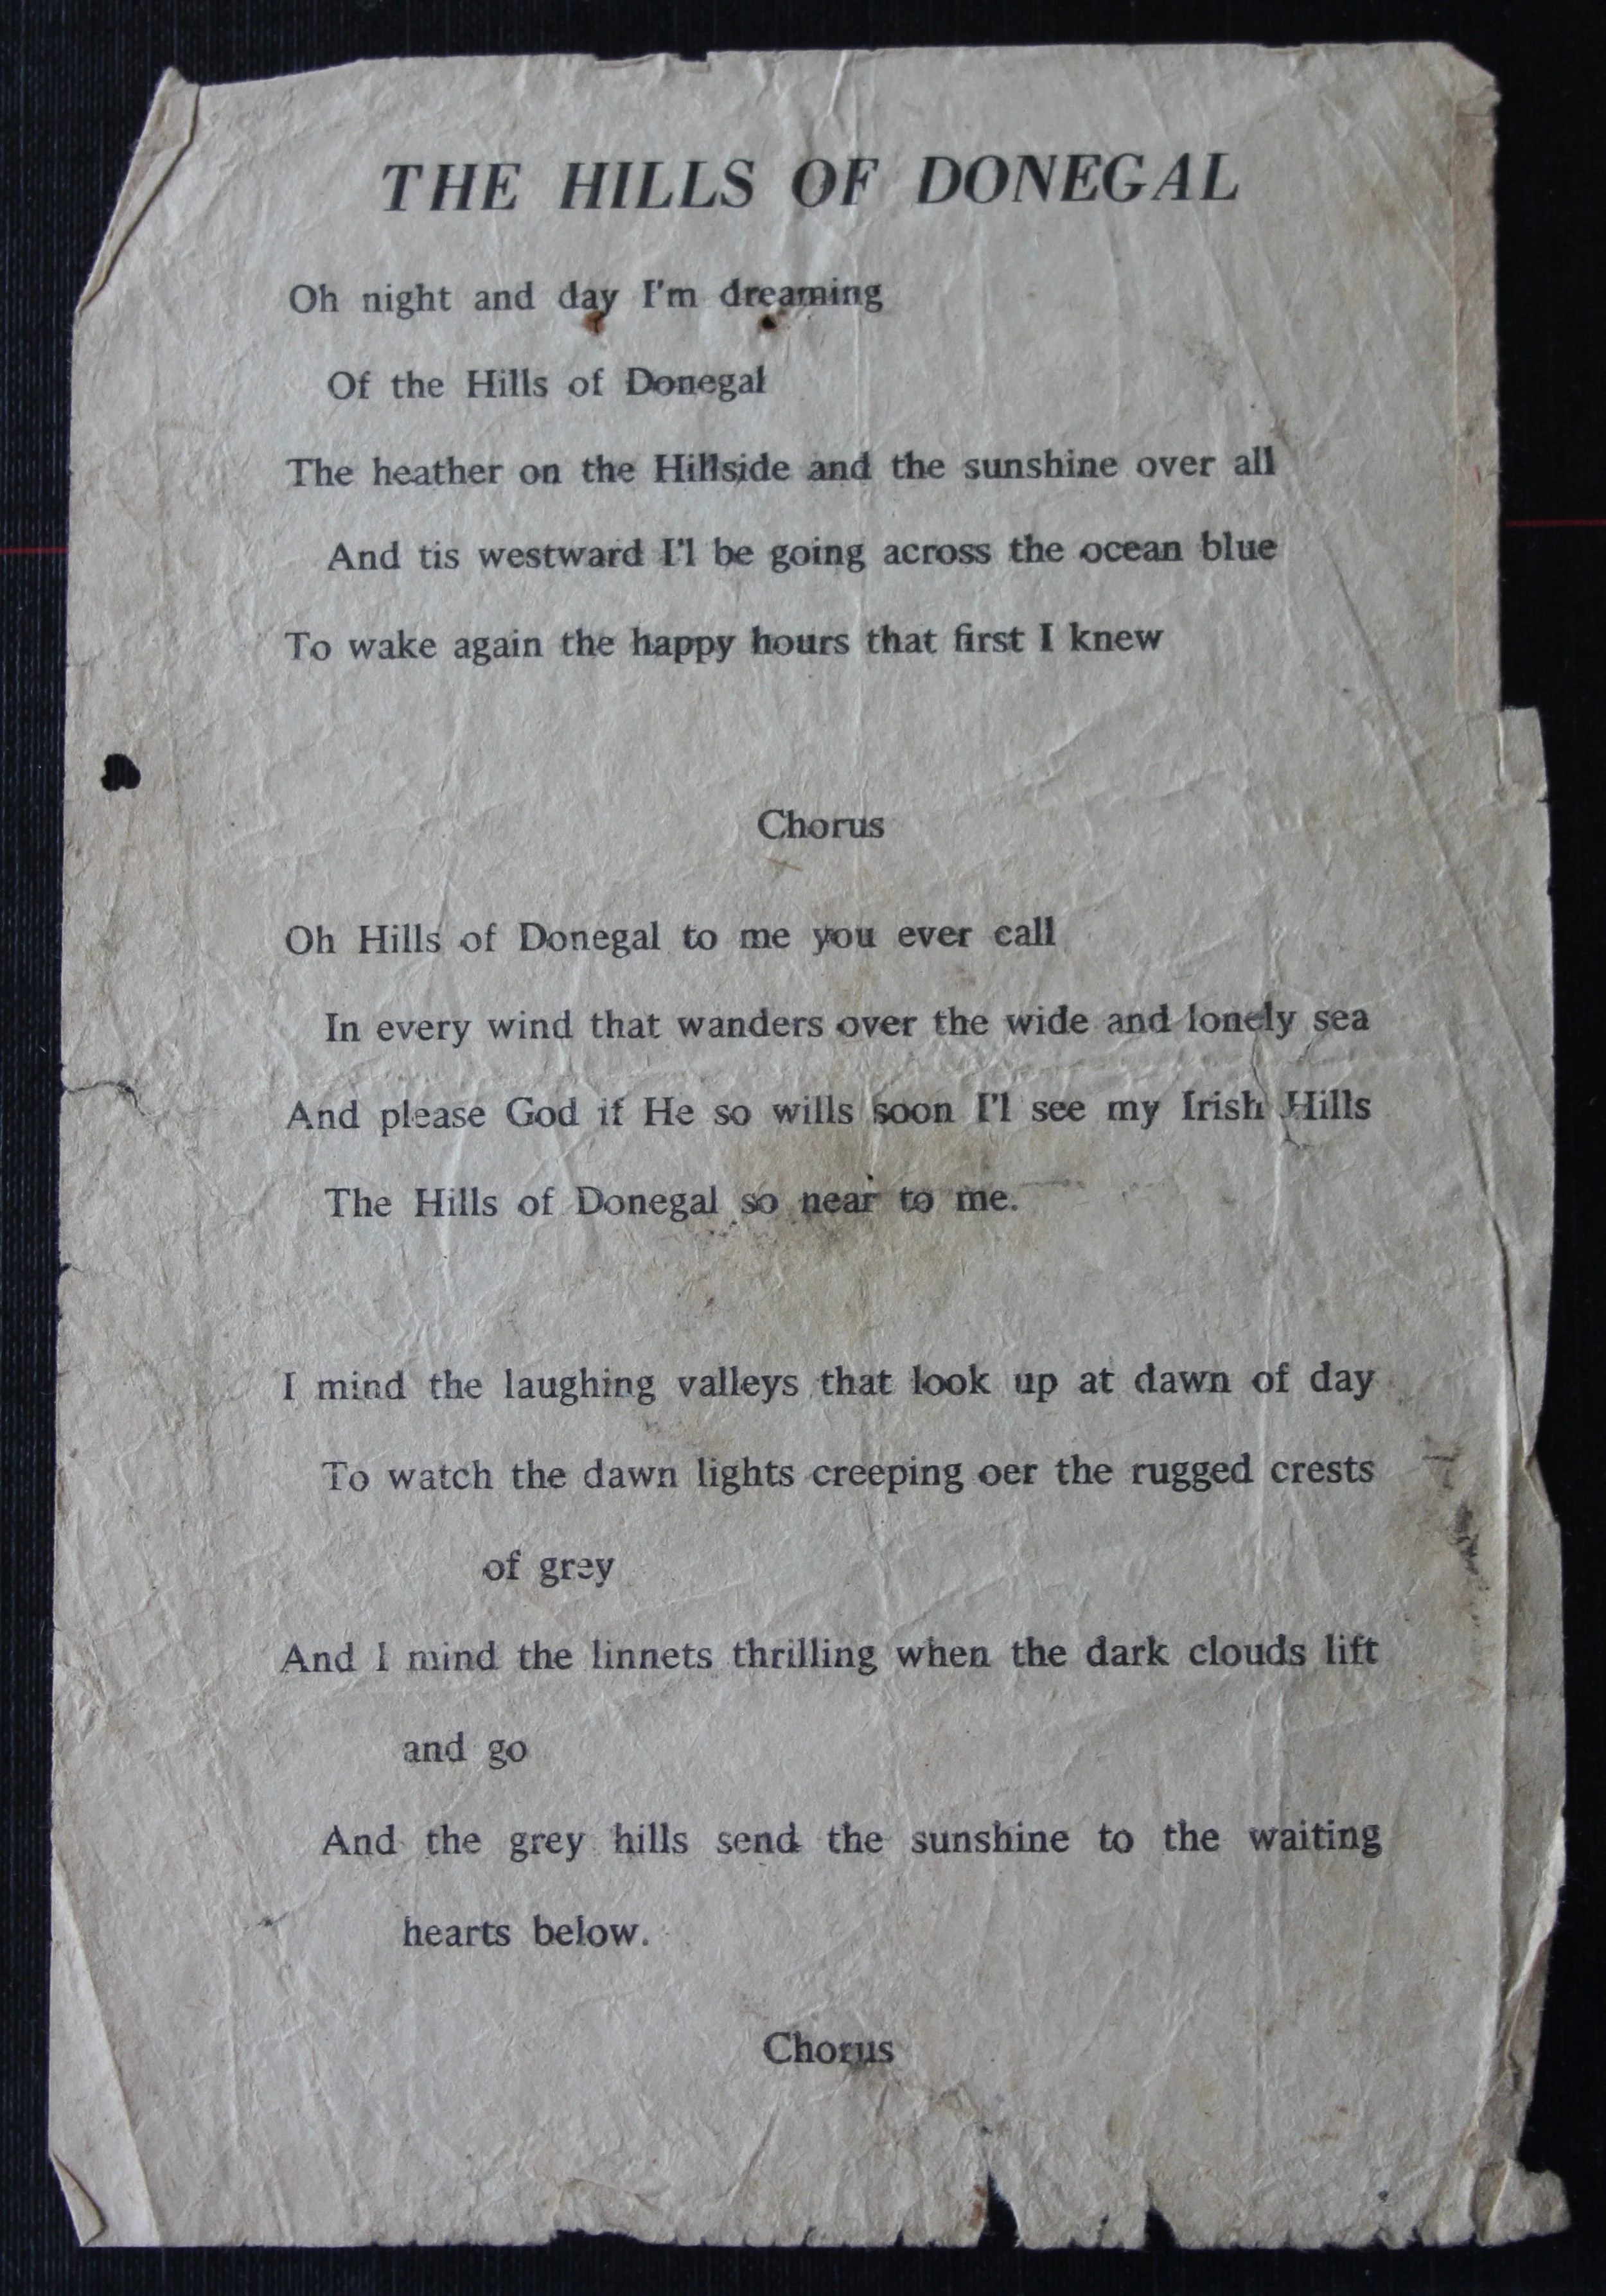 THE HILLS OF DONEGAL
Oh night and day I'm dreaming
Of the Hills of Donegal
The heather on the Hillside and the sunshine over all
And tis westward I'l be going across the ocean blue
To wake again the happy hours that first I knew
Chorus
Oh Hills of Donegal to me you ever call
In every wind that wanders over the wide and lonely sea
And please God if He so wills soon I'l see my Irish Hills
The Hills of Donegal so near to me.
I mind the laughing valleys that look up at dawn of day
To watch the dawn lights creeping oer the rugged crests
of grey
And I mind the linnets thrilling when the dark clouds lift
and go
And the grey hills send the sunshine to the waiting
hearts below.
Chorus